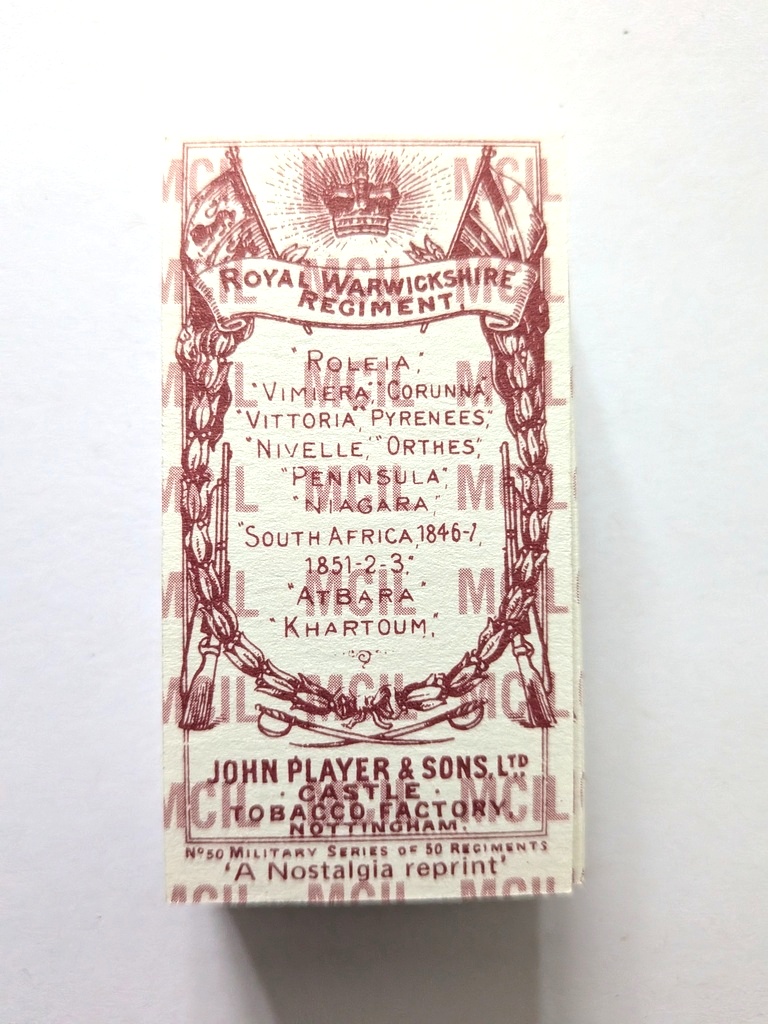 ROYAL WARWICKSHIRE
REGIMENT
"ROLEIA,"
"VIMIERA," "CORUNNA,"
"VITTORIA," PYRENEES,"
"NIVELLE," "ORTHES,"
"PENINSULA,"
"NIAGARA,"
"SOUTH AFRICA, 1846-7,
1851-2-3."
"ATBARA"
"KHARTOUM,"
JOHN PLAYER & SONS, LTD
· CASTLE ·
TOBACCO FACTORY,
NOTTINGHAM.
No 50 MILITARY SERIES OF 50 REGIMENTS
'A Nostalgia reprint'
MCIL MCIL MCIL
MCIL MCIL MCIL
MCIL MCIL MCIL
MCIL MCIL MCIL
MCIL MCIL MCIL
MCIL MCIL MCIL
MCIL MCIL MCIL
MCIL MCIL MCIL